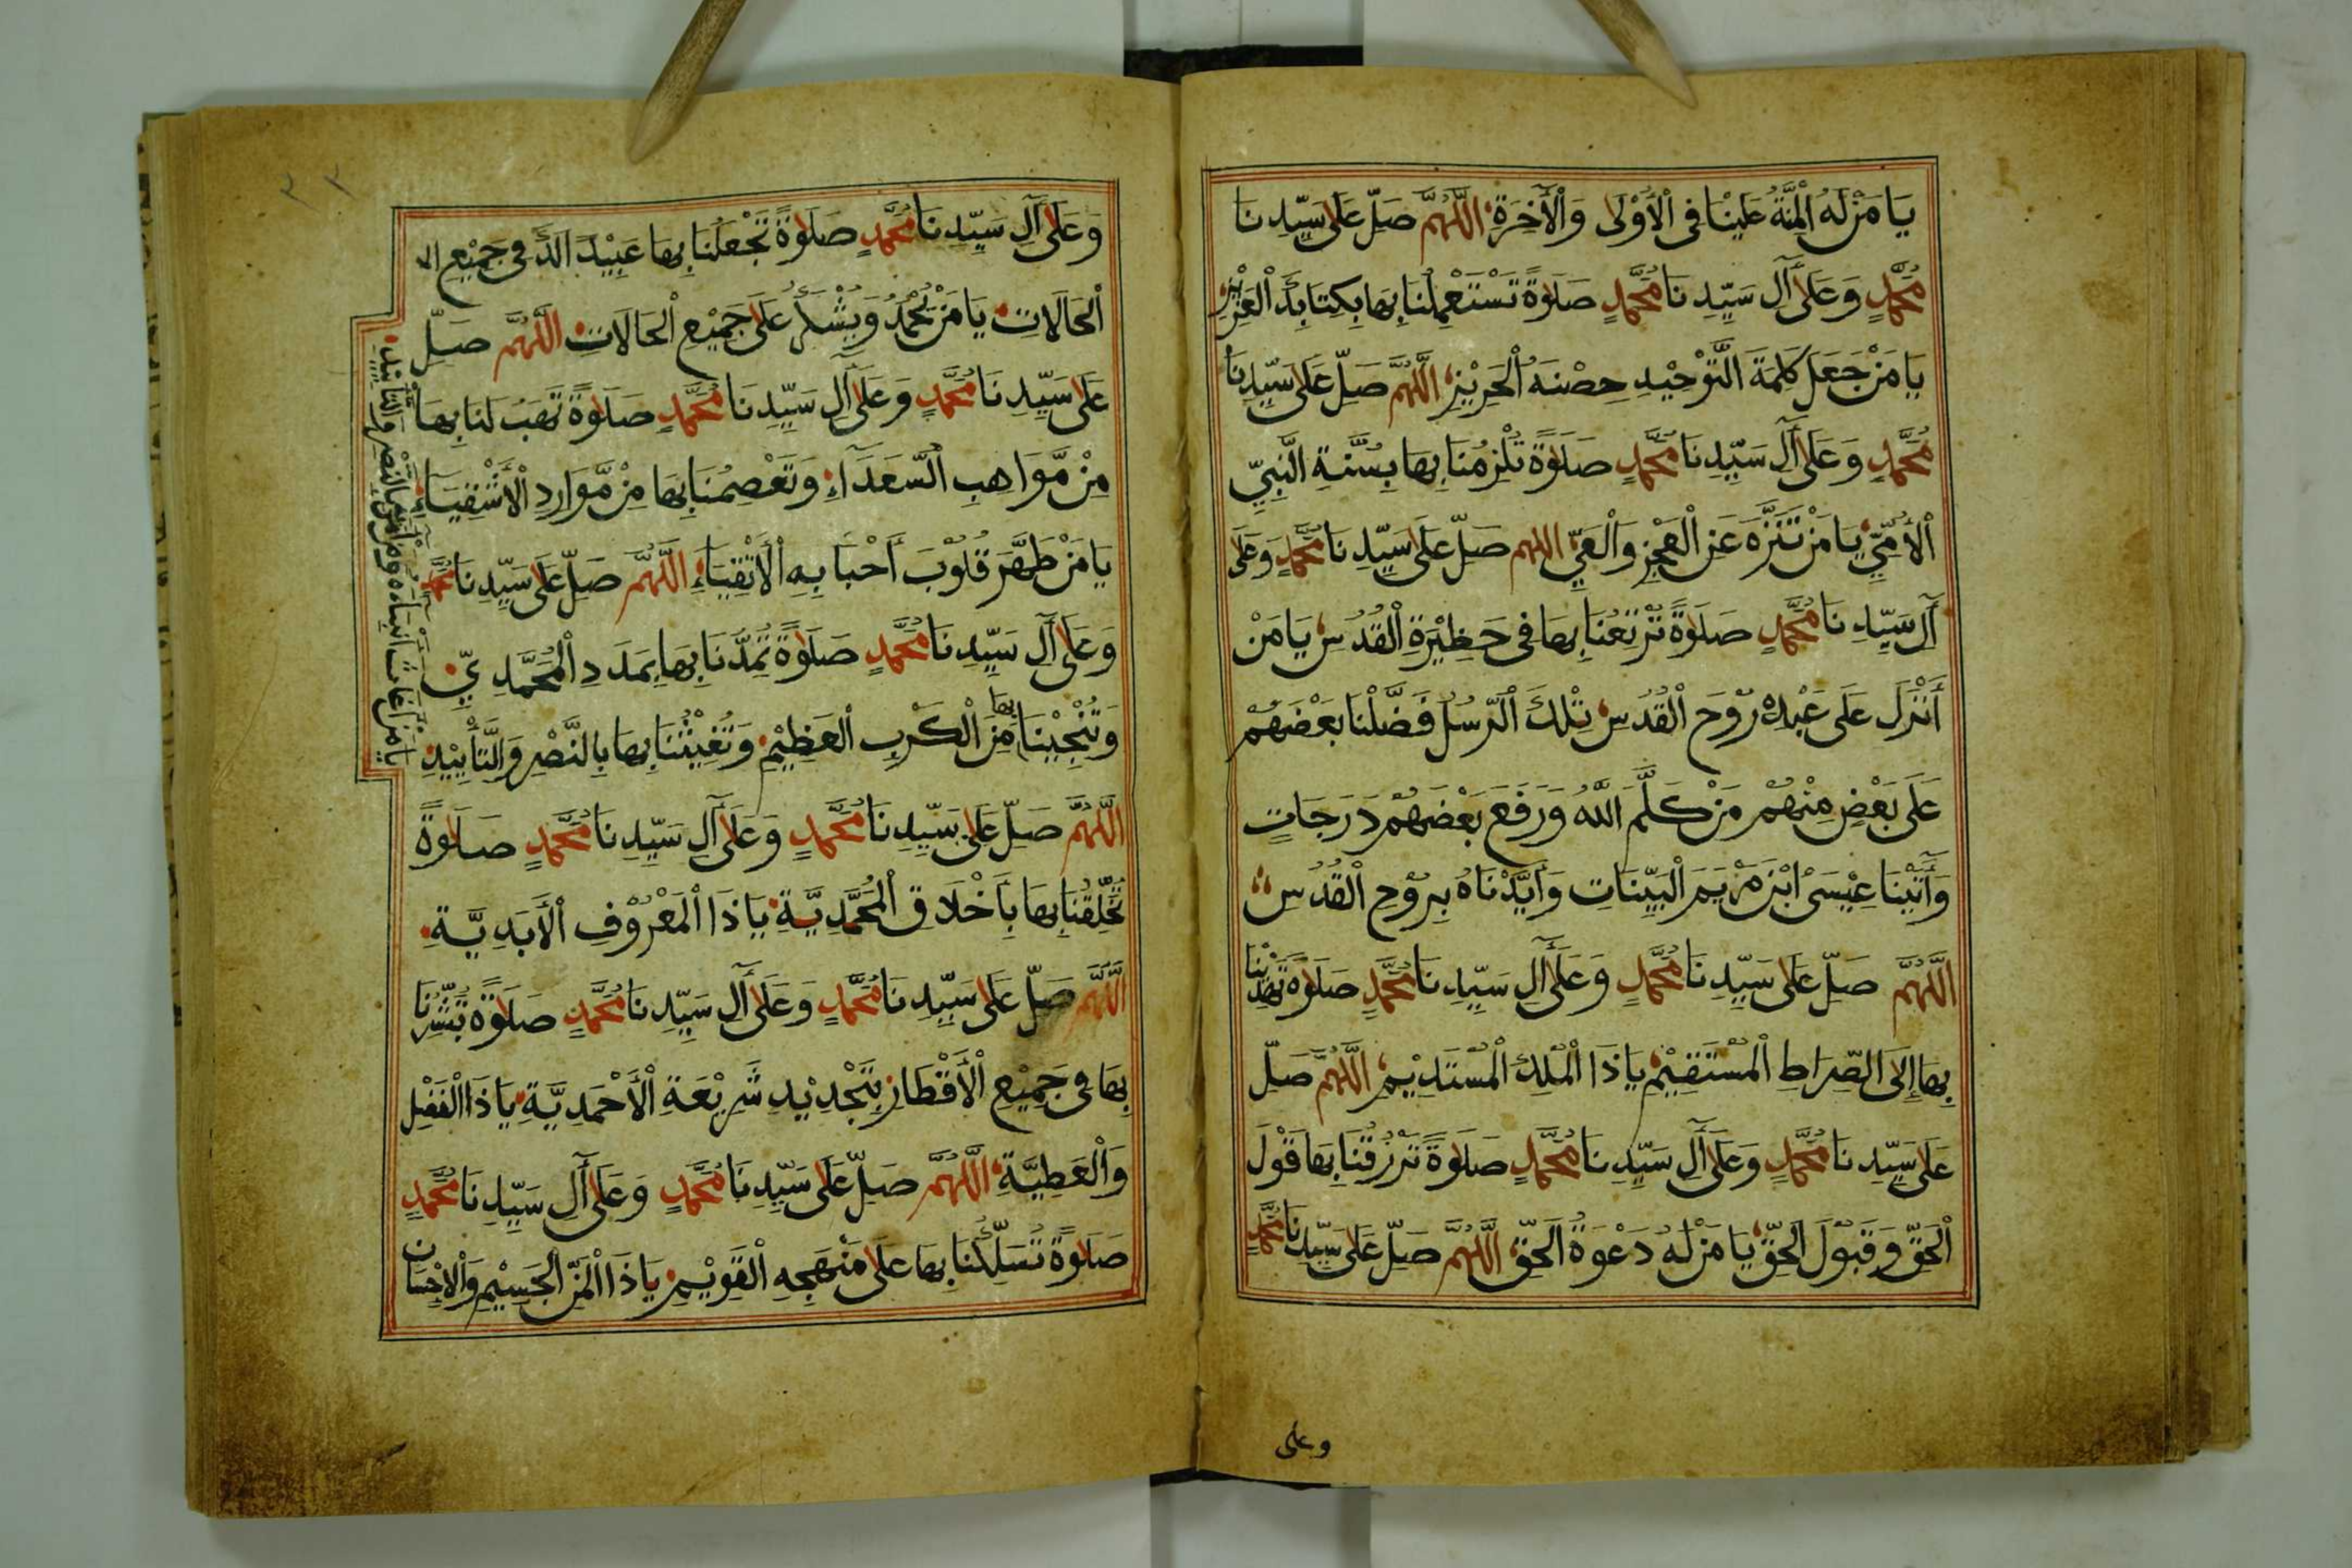 يَا مَنْ لَهُ الْمِنَّةُ عَلَيْنَا فِى الْأُوْلٰى وَالْأٰخِرَةِ اَللّٰهُمَّ صَلِّ عَلٰى سَيِّدِنَا
مُحَمَّدٍ وَعَلٰى أٰلِ سَيِّدِنَا مُحَمَّدٍ صَلٰوةً تَسْتَعْمِلُنَا بِهَا بِكِتَابِكَ الْعَزِيْزِ
يَا مَنْ جَعَلَ كَلِمَةَ التَّوْحِيْدِ حِصْنَهُ الْحَرِيْزِ اَللّٰهُمَّ صَلِّ عَلٰى سَيِّدِنَا
مُحَمَّدٍ وَعَلٰى أٰلِ سَيِّدِنَا مُحَمَّدٍ صَلَوٰةً تُلْزِمُنَا بِهَا بِسُنَّةِ النَّبِيِّ
الْأُمِّيِّ يَا مَنْ تَنَزَّهَ عَنِ الْعَجْزِ وَالْعَيِّ اللهم صَلِّ عَلٰى سَيِّدِنَا مُحَمَّدٍ وَعَلٰى
أٰلِ سَيِّدِنَا مُحَمَّدٍ صَلٰوةً تُرْتِعُنَا بِهَا فِى حَظِيْرَةِ الْقُدُسِ يَا مَنْ
أَنْزَلَ عَلٰى عَبْدِهٖ رُوْحَ الْقُدُسِ تِلْكَ الرُّسُلُ فَضَّلْنَا بَعْضَهُمْ
عَلٰى بَعْضٍ مِنْهُمْ مَنْ كَلَّمَ اللّٰهُ وَرَفَعَ بَعْضَهُمْ دَرَجَاتٍ
وَأٰتَيْنَا عِيْسَى ابْنَ مَرْيَمَ الْبَيِّنَاتِ وَأَيَّدْنَاهُ بِرُوْحِ الْقُدُسِ
اَللّٰهُمَّ صَلِّ عَلٰى سَيِّدِنَا مُحَمَّدٍ وَعَلٰى أٰلِ سَيِّدِنَا مُحَمَّدٍ صَلَوٰةً تَهْدِيْنَا
بِهَا إِلَى الصِّرَاطِ الْمُسْتَقِيْمِ يَا ذَا الْمُلْكِ الْمُسْتَدِيْمِ اَللّٰهُمَّ صَلِّ
عَلٰى سَيِّدِنَا مُحَمَّدٍ وَعَلٰى أٰلِ سَيِّدِنَا مُحَمَّدٍ صَلَوٰةً تَرْزُقُنَا بِهَا قَوْلَ
الْحَقِّ وَقَبُوْلَ الْحَقِّ يَا مَنْ لَهُ دَعْوَةُ الْحَقِّ اَللّٰهُمَّ صَلِّ عَلٰى سَيِّدِنَا مُحَمَّدٍ
وعلى
٢٢
وَعَلٰى أٰلِ سَيِّدِنَا مُحَمَّدٍ صَلَوٰةً تَجْعَلُنَا بِهَا عَبِيْدًا لَكَ فِى جَمِيْعِ ال
الْحَالَاتِ يَا مَنْ يُحْمَدُ وَيُشْكَرُ عَلٰى جَمِيْعِ الْحَالَاتِ اَللّٰهُمَّ صَلِّ
عَلٰى سَيِّدِنَا مُحَمَّدٍ وَعَلٰى أٰلِ سَيِّدِنَا مُحَمَّدٍ صَلٰوةً تَهَبُ لَنَا بِهَا
مِنْ مَّوَاهِبِ السُّعَدَاءِ وَتَعْصِمُنَا بِهَا مِنْ مَّوَارِدِ الْأَشْقِيَاءِ
يَا مَنْ طَهَّرَ قُلُوْبَ أَحْبَابِهِ الْأَتْقِيَاءِ اَللّٰهُمَّ صَلِّ عَلٰى سَيِّدِنَا مُحَمَّدٍ
وَعَلٰى أٰلِ سَيِّدِنَا مُحَمَّدٍ صَلَوٰةً تُمِدُّنَا بِهَا بِمَدَدِ الْمُحَمَّدِيِّ
وَتُنْجِيْنَا بها مِنَ الْكَرْبِ الْعَظِيْمِ وَتُغِيْثُنَا بِهَا بِالنَّصْرِ وَالتَّأْيِيْدِ
يا من أغاث أنبياءه بالنصر والتأييد
اَللّٰهُمَّ صَلِّ عَلٰى سَيِّدِنَا مُحَمَّدٍ وَعَلٰى أٰلِ سَيِّدِنَا مُحَمَّدٍ صَلٰوةً
تُخَلِّقُنَا بِهَا بِأَخْلَاقِ الْمُحَمَّدِيَّةِ يَا ذَا الْمَعْرُوْفِ الْأَبَدِيَّةِ
اَللّٰهُمَّ صَلِّ عَلٰى سَيِّدِنَا مُحَمَّدٍ وَعَلٰى أٰلِ سَيِّدِنَا مُحَمَّدٍ صَلَوٰةً تُبَشِّرُنَا
بِهَا فِى جَمِيْعِ الْأَقْطَارِ بِتَجْدِيْدِ شَرِيْعَةِ الْأَحْمَدِيَّةِ يَا ذَا الْفَضْلِ
وَالْعَطِيَّةِ اَللّٰهُمَّ صَلِّ عَلٰى سَيِّدِنَا مُحَمَّدٍ وَعَلٰى أٰلِ سَيِّدِنَا مُحَمَّدٍ
صَلَوٰةً تُسَلِّكُنَا بِهَا عَلٰى مَنْهَجِهِ الْقَوِيْمِ يَا ذَا الْمَنِّ الْجَسِيْمِ وَالْاِحْسَانِ